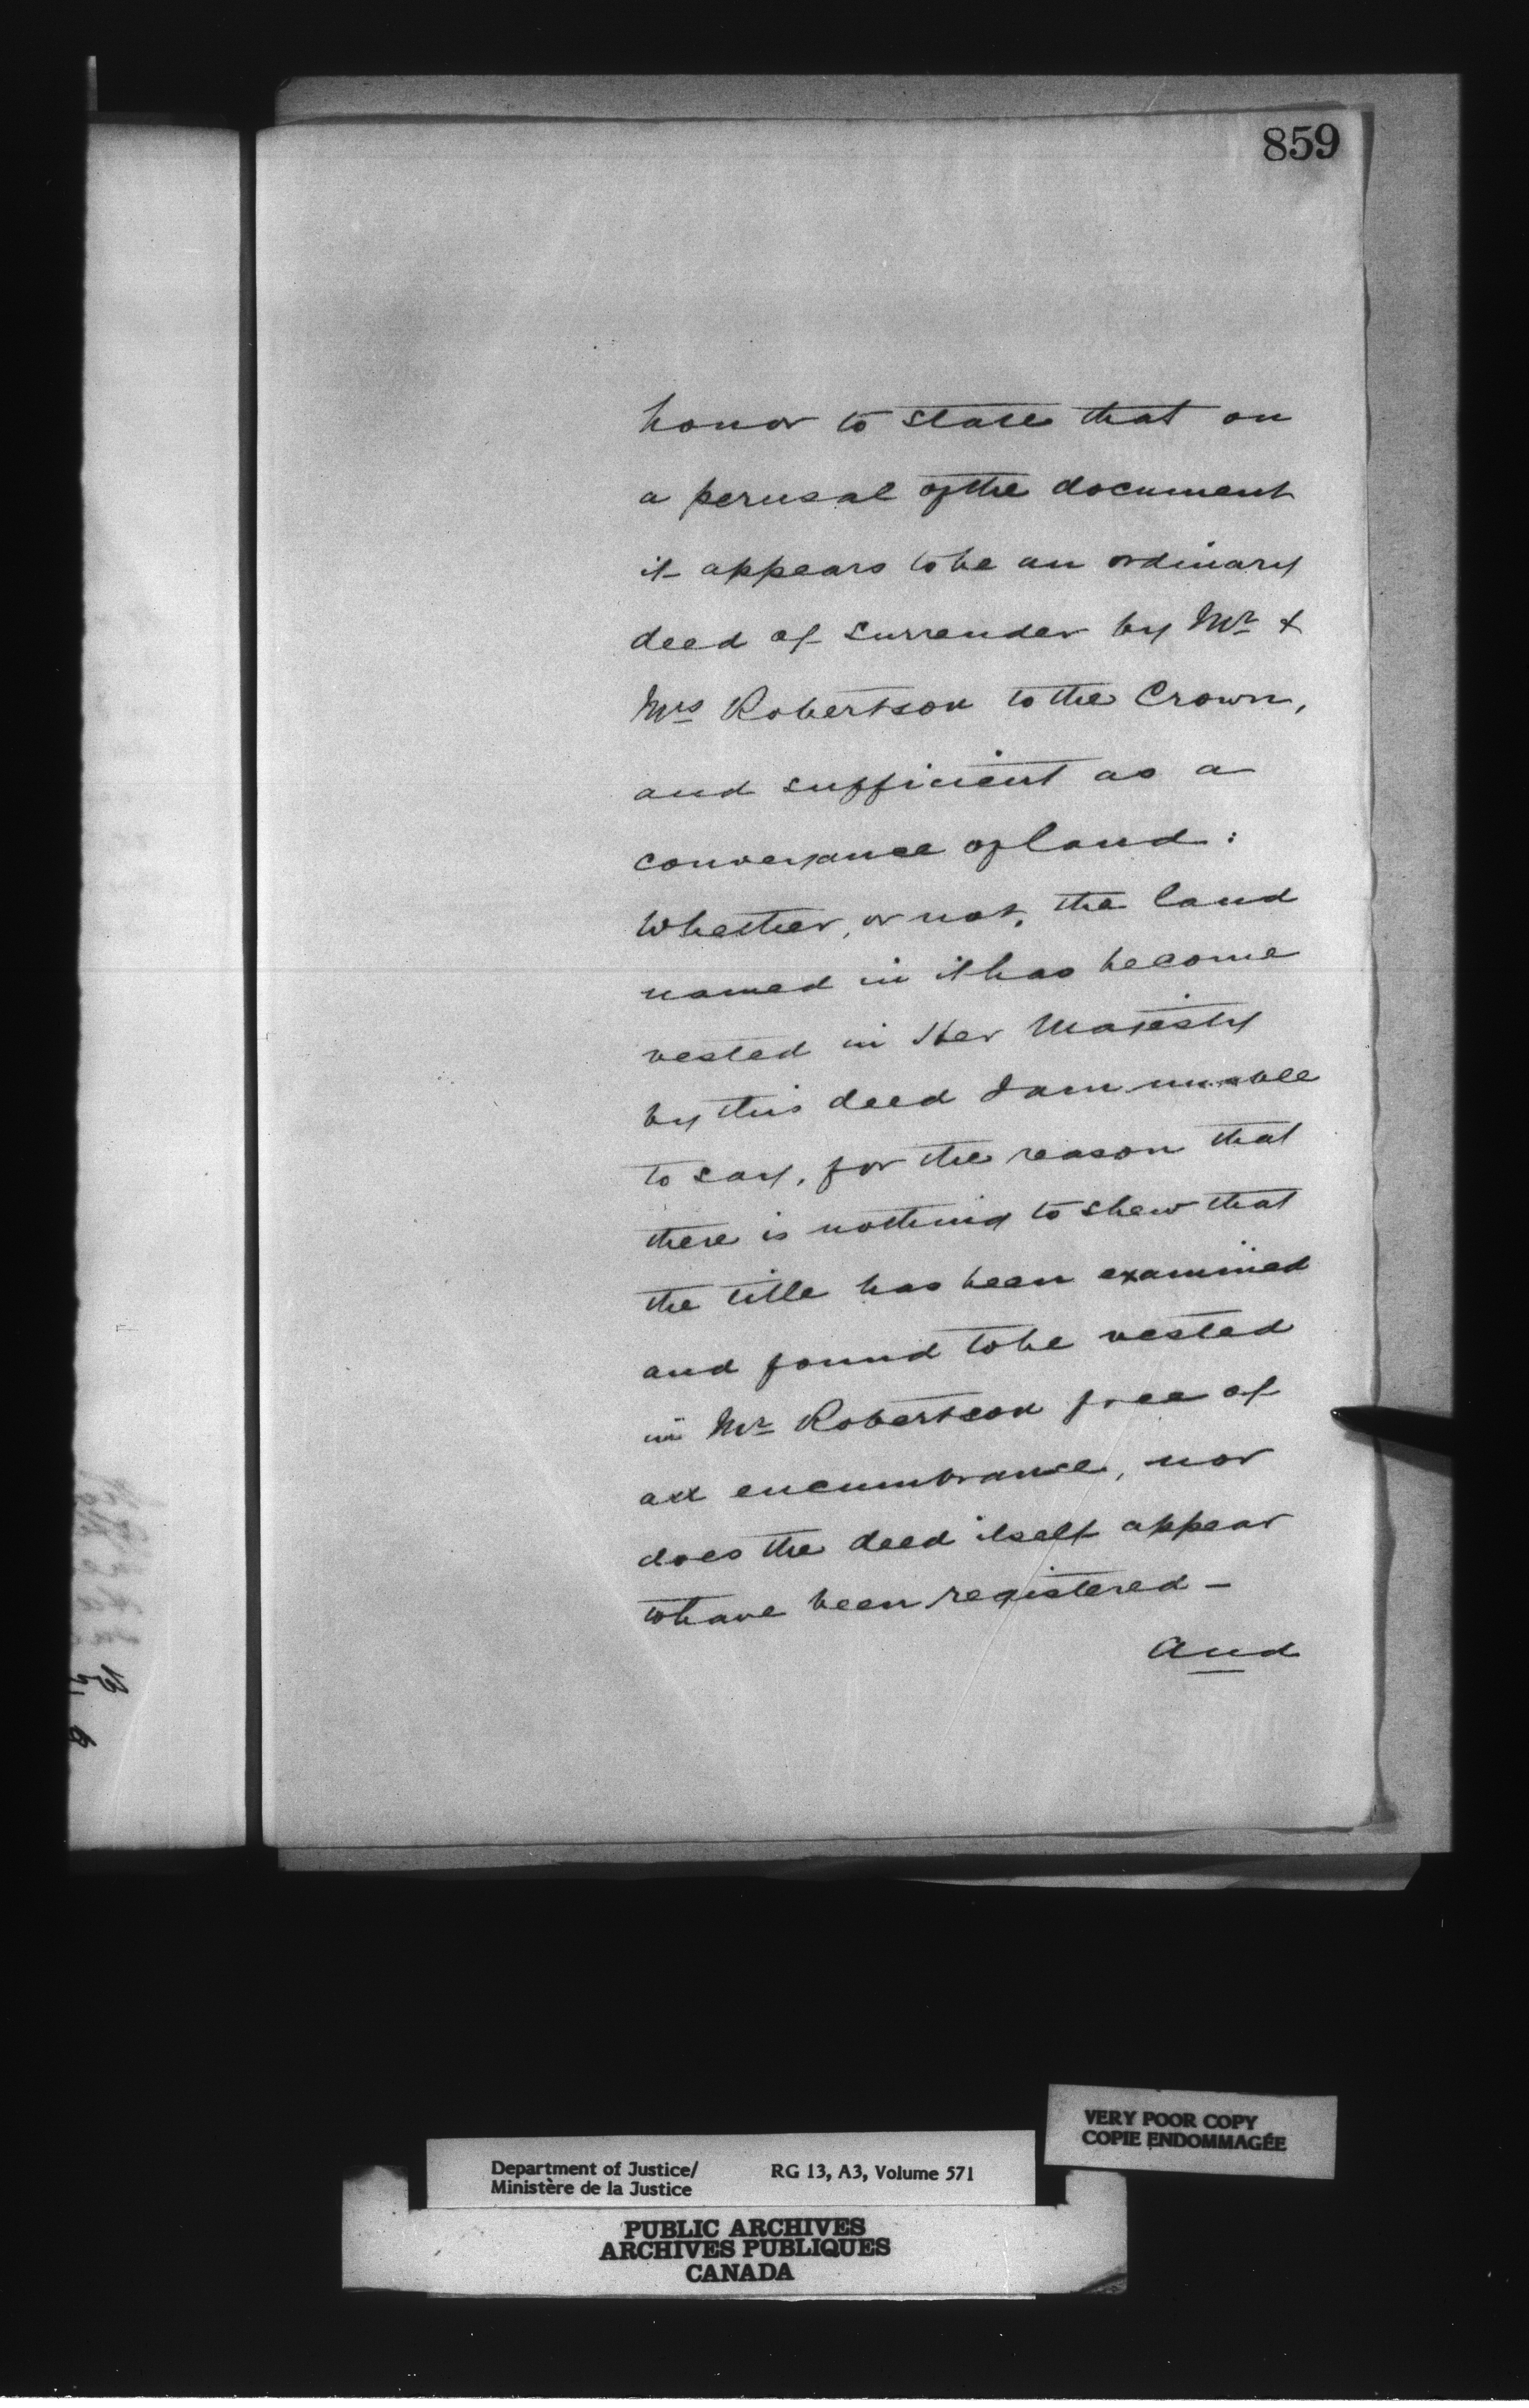 859
honor to state that on
a perusal of the document
it appears to be an ordinary
deed of surrender by Mr &
Mrs Robertson to the Crown,
and sufficient as a
conveyance of land:
Whether, or not, the land
named in it has become
vested in Her Majesty
by this deed I am unable
to say, for the reason that
there is nothing to shew that
the title has been examined
and found to be vested
in Mr Robertson free of
all encumbrance, nor
does the deed itself appear
to have been registered -
And
VERY POOR COPY
COPIE ENDOMMAGÉE
Department of Justice/ RG 13, A3, Volume 571
Ministère de la Justice
PUBLIC ARCHIVES
ARCHIVES PUBLIQUES
CANADA